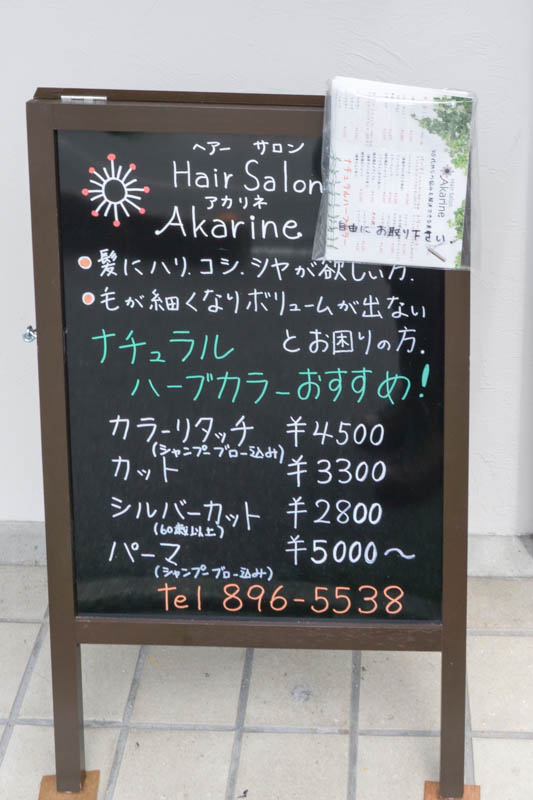 ヘアー サロン
Hair Salon
アカリネ
Akarine
●髪にハリ.コシ.ツヤが欲しい方.
●毛が細くなりボリュームが出ない
とお困りの方.
ナチュラル
ハーブカラーおすすめ!
カラーリタッチ ¥4500
(シャンプーブロー込み)
カット ¥3300
シルバーカット ¥2800
(60歳以上)
パーマ ¥5000～
(シャンプーブロー込み)
tel 896-5538
Hair Salon
Akarine
ナチュラルハーブカラー
自由にお取り下さい.